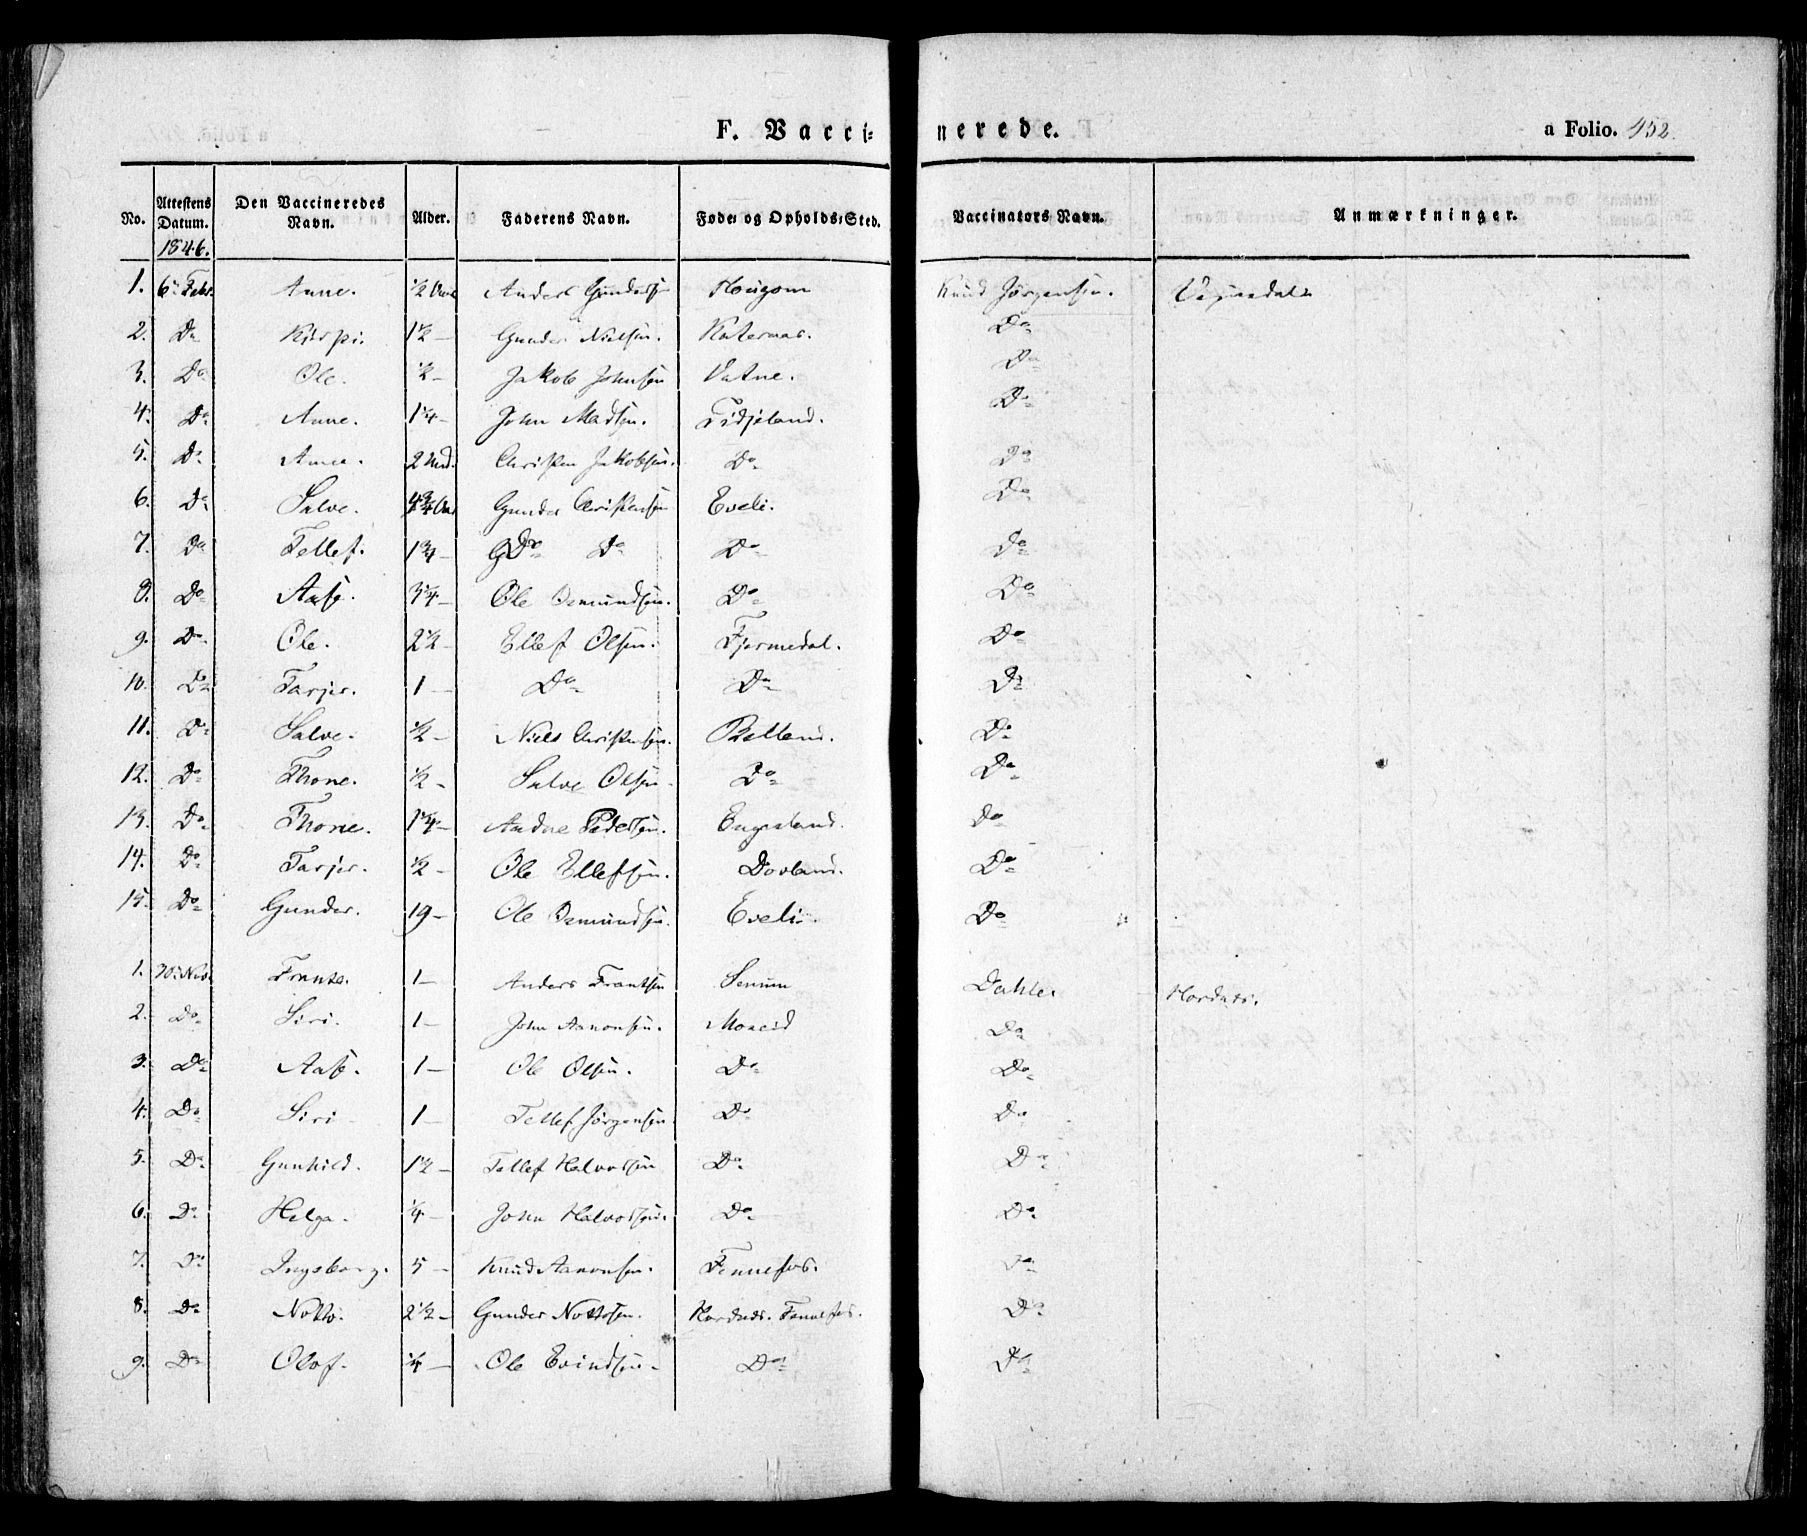 F. Vacci-nerede. a Folio. 452.
No. Attestens Datum. Den Vaccineredes Navn. Alder. Faderens Navn. Føde- og Opholds-Sted. Vaccinators Navn. Anmærkninger.
1846.
1. 6te Febr. Anne. 1/2 Anders Gundersen Hougom Knud Jørgensen.
2. Do 1 1/2 – Gunder Nielsen. Katernas. Do
3. Do Ole. 1/2 – Jakob Johnsen Vatne. Do
4. Do Anne. 1 1/4 – John Madsen. Fidjeland. Do
5. Do Anne. 2 Christen Jakobsen. Do Do
6. Do Salve. Gunder Christensen Eveli. Do
7. Do Tellef. 1 3/4 – Do Do Do Do
8. Do Aase. 3 1/4 – Ole Osmundsen. Do Do
9. Do Ole. 2 1/2 – Ellef Olsen. Fjermedal. Do
10. Do Tarjer. 1 – Do Do Do
11. Do Salve. 1/2 – Niels Christensen. Do
12. Do Thone. 1/2 – Salve Olsen. Do Do
13. Do Thone. 1 3/4 – Pedersen. Engesland. Do
14. Do Tarjer. 1/2 – Ole Ellefsen. Dovland. Do
15. Do Gunder. 19 – Ole Osmundsen. Eveli. Do
1. 30te Nov. Frants. 1 – Anders Frantsen Senum Dahle.
2. Do Siri. 1 – John Aanonsen. Moseid Do
3. Do Aase. 1 – Ole Olsen. Do Do
4. Do Siri 1 – Tellef Jørgensen. Do Do
5. Do Gunhild. 1 1/2 – Tellef Halvorsen Do Do
6. Do Helga. 1/4 – John Halvorsen. Do Do
7. Do Ingeborg. 5 – Knud Aanonsen. Fennefos. Do
8. Do Notto. 2 1/2 – Gunder Nottosen. Fennefos. Do
9. Do Olof. 1/4 – Ole Evindsen. Do Do